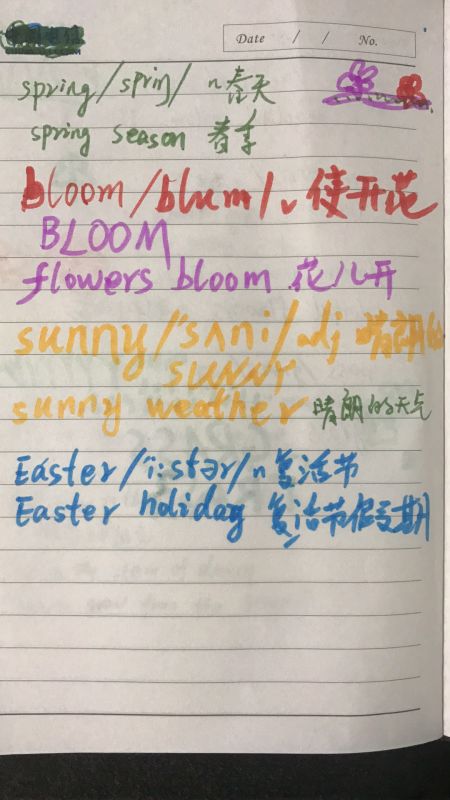 Date / / No.
spring/spriŋ/ n春天
spring season 春季
bloom/blum/v使开花
BLOOM
flowers bloom 花儿开
sunny/ˈsʌni/adj 晴朗的
SUNNY
sunny weather 晴朗的天气
Easter/ˈi:stər/n复活节
Easter holiday 复活节假期